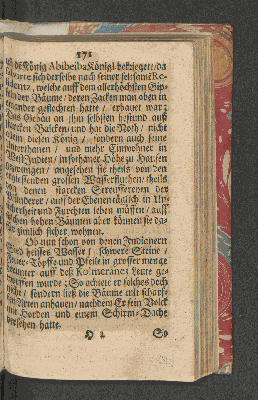 171
den König Abibeiba Königl. bekrieget / da
salvirte sich derselbe nach seiner seltsame Re-
sidentz / welche auff dem allerhöchsten Gip-
der Bäume / deren Zacken man oben in
einander geflochten hatte / erbauet war:
Das Gebäu an ihm selbsten bestund auß
starcken Balcken / und hat die Noth / nicht
allein diesen König / sondern auch seine
Unterthanen / und mehr Einwohner in
West-Indien / in sothaner Höhe zu Hausen
gezwungen / angesehen sie theils von den
entstehenden grossen Wasserfluthen / theils
von denen starcken Streiffereyen der
Räuberer / auf der Ebenen täglich in Un-
sicherheit und Furchten leben müssen / auff
solchen hohen Bäumen aber können sie da-
ziemlich sicher wohnen.
Ob nun schon von denen Indianern
heisses Wasser / schwere Steine /
Feuer-Töpffe und Pfeile in grosser menge
herunter auff deß Kolmenares Leute ge-
worffen wurde; So achtete er solches doch
nicht / sondern ließ die Bäume mit scharf-
fen Äxten anhauen / nachdem Er sein Volck
mit Horden und einem Schirm-Dache
versehen hatte.
H 2 So